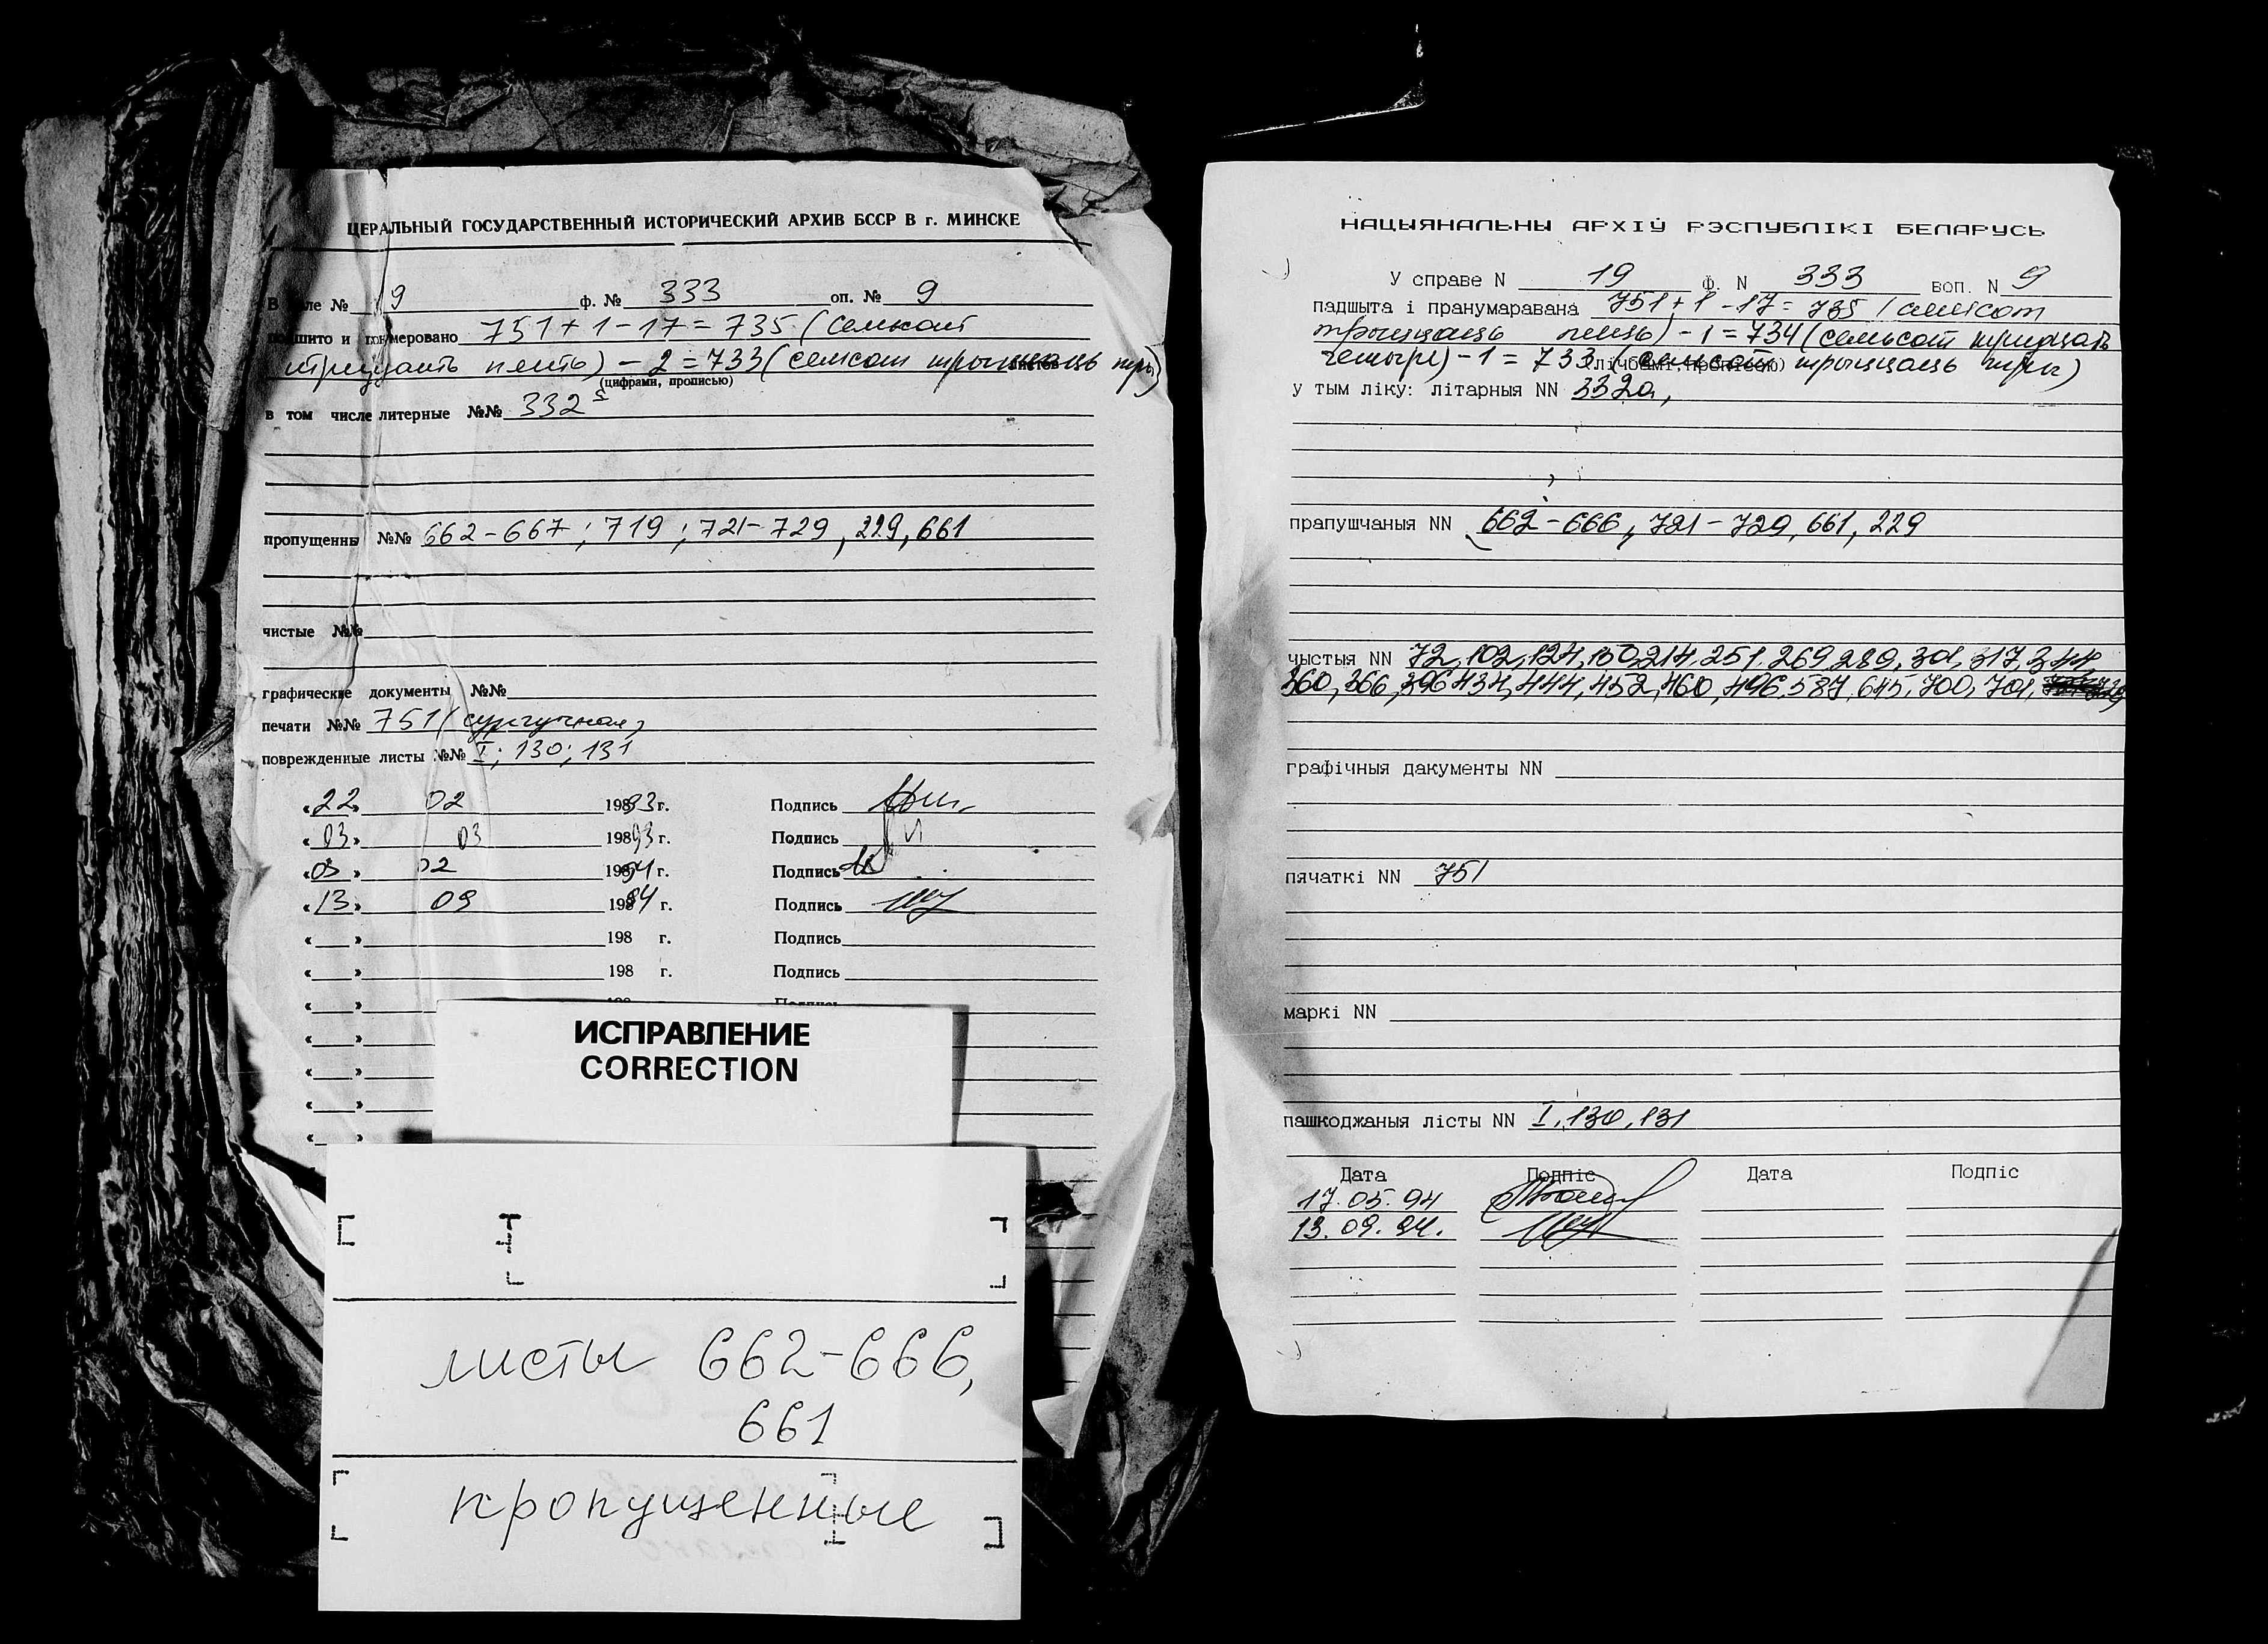 ЦЕРАЛЬНЫЙ ГОСУДАРСТВЕННЫЙ ИСТОРИЧЕСКИЙ АРХИВ БССР В г. МИНСКЕ
В ле № 19 ф. № 333 оп. № 9
шито и нумеровано 751+1-17=735 (семьсот
тридцать пять) - 2=733 (семсот трыццаць тры)
листов
(цифрами, прописью)
в том числе литерные №№ 332а
пропущенны №№ 662-667; 719; 721-729, 229, 661
чистые №№
графические документы №№
печати №№ 751 (сургучная)
поврежденные листы №№ I; 130; 131
«22» 02 19893г. Подпись
«03» 03 19893 г. Подпись
«03» 02 19894 г. Подпись
«13» 09 19894 г. Подпись
« » 198 г. Подпись
« » 198 г. Подпись
« » 198 Подпись
« »
« »
« »
« »
ИСПРАВЛЕНИЕ
CORRECTION
листы 662-666,
661
пропущенные
НАЦЫЯНАЛЬНЫ АРХІЎ РЭСПУБЛІКІ БЕЛАРУСЬ
У справе N 19 ф. N 333 воп. N 9
падшыта і пранумаравана 751+1-17=735 (семсот
трыццаць пець) - 1=734 (семьсот тридцать
четыре) - 1 = 733 (семсот трыццаць тры)
(лічбамі, пропісою)
у тым ліку: літарныя NN 332а,
прапушчаныя NN 662-666, 721-729, 661, 229
чыстыя NN 72, 102, 124, 150, 214, 251, 269, 289, 301, 317, 344
360, 366, 396, 434, 444, 452, 460, 496, 587, 645, 700, 701,
графічныя дакументы NN
пячаткі NN 751
маркі NN
пашкоджаныя лісты NN I, 130, 131
Дата Подпіс Дата Подпіс
17.05.94
13.09.94.